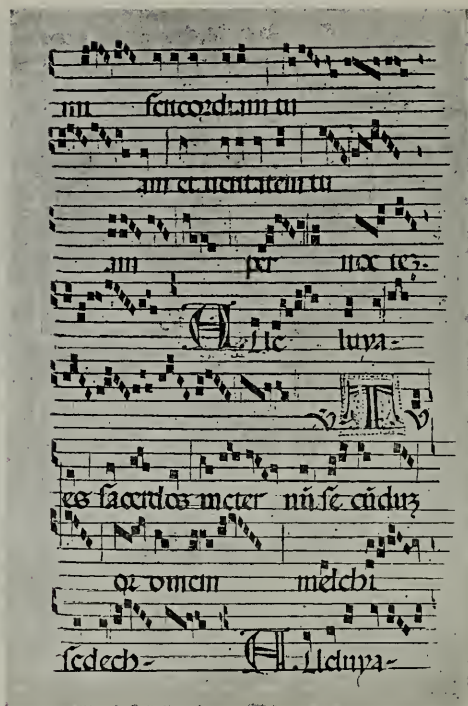 mi sericordiam tu
am et veritatem tu
am per noc tez.
Alle luya-
V T V
es sacerdos in eter nũ se cũduz
or dinem melchi
sedech- Alleluya-